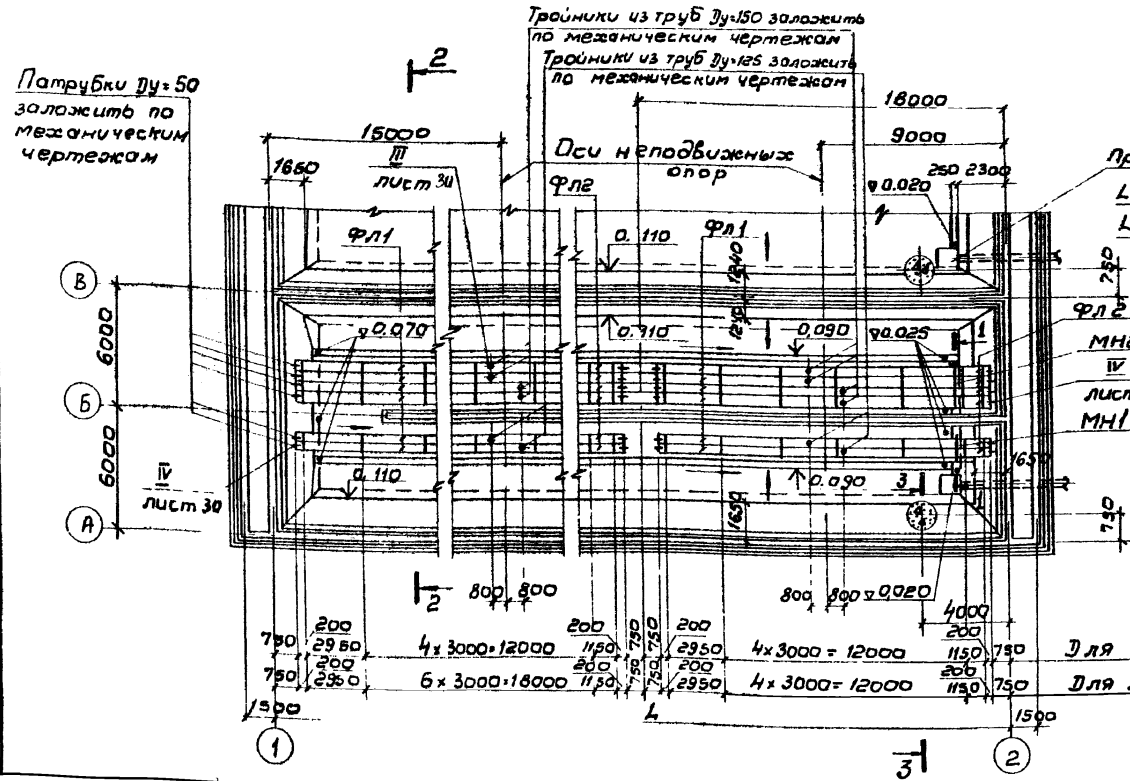 Тройники из труб Ду=150 заложить
по механическим чертежам
Тройники из труб Ду=125 заложить
по механическим чертежам
2
Патрубки Ду=50
заложить по
механическим
чертежам
18000
15000
9000
Оси неподвижных
опор
III
лист 30
1650
250 2300
▽0.020
Фл2
Фл1
0.110
Фл1
1240
750
В
▽0.070
0.110
0.090
▽0.025
1
Фл2
6000
IV
лист
Б
МН1
6000
1650
IV
лист 30
0.110
0.090
3
1650
А
750
2
800 800
800 800 ▽0.020
4000
750 200 2950 4х3000=12000 200 1150 750 750 200 2950 4х3000=12000 200 1150 750 Для
750 200 2950 6х3000=18000 200 1150 750 750 200 2950 4х3000=12000 200 1150 750 Для
1500
L
1500
1
3
2